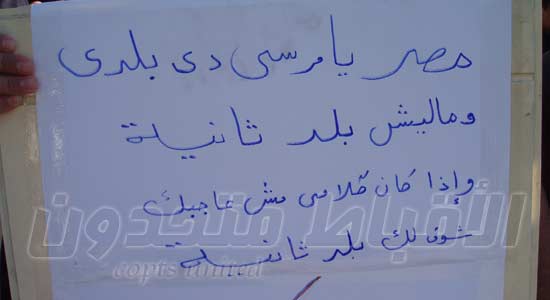 مصر يا مرسى دى بلدى
وماليش بلد ثانية
وإذا كان كلامى مش عاجبك
شوف لك بلد ثانية
الأقباط متحدون
copts united